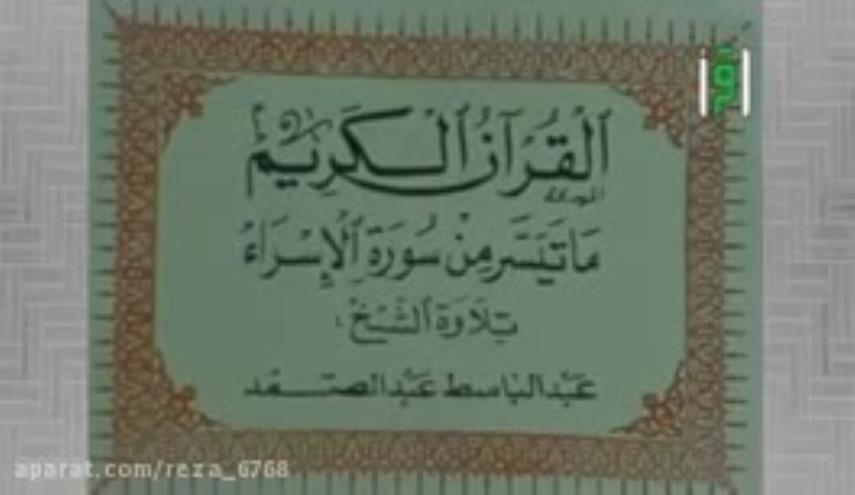 اقرأ
القرآن الكريم
ما تيسر من سورة الإسراء
تلاوة الشيخ :
عبد الباسط عبد الصمد
aparat.com/reza_6768